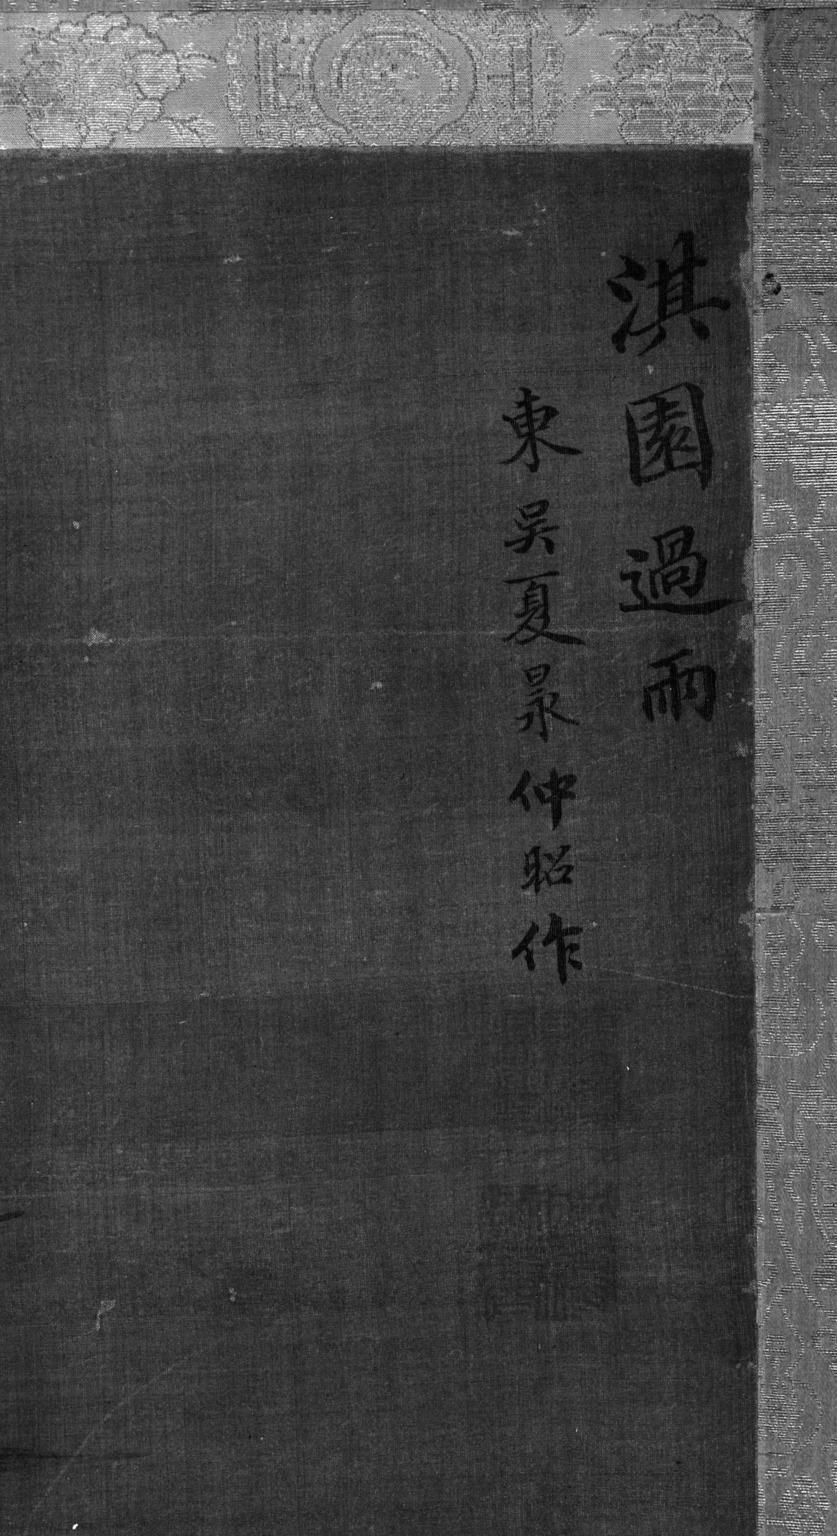 淇園過雨
東吳夏㫤仲昭作